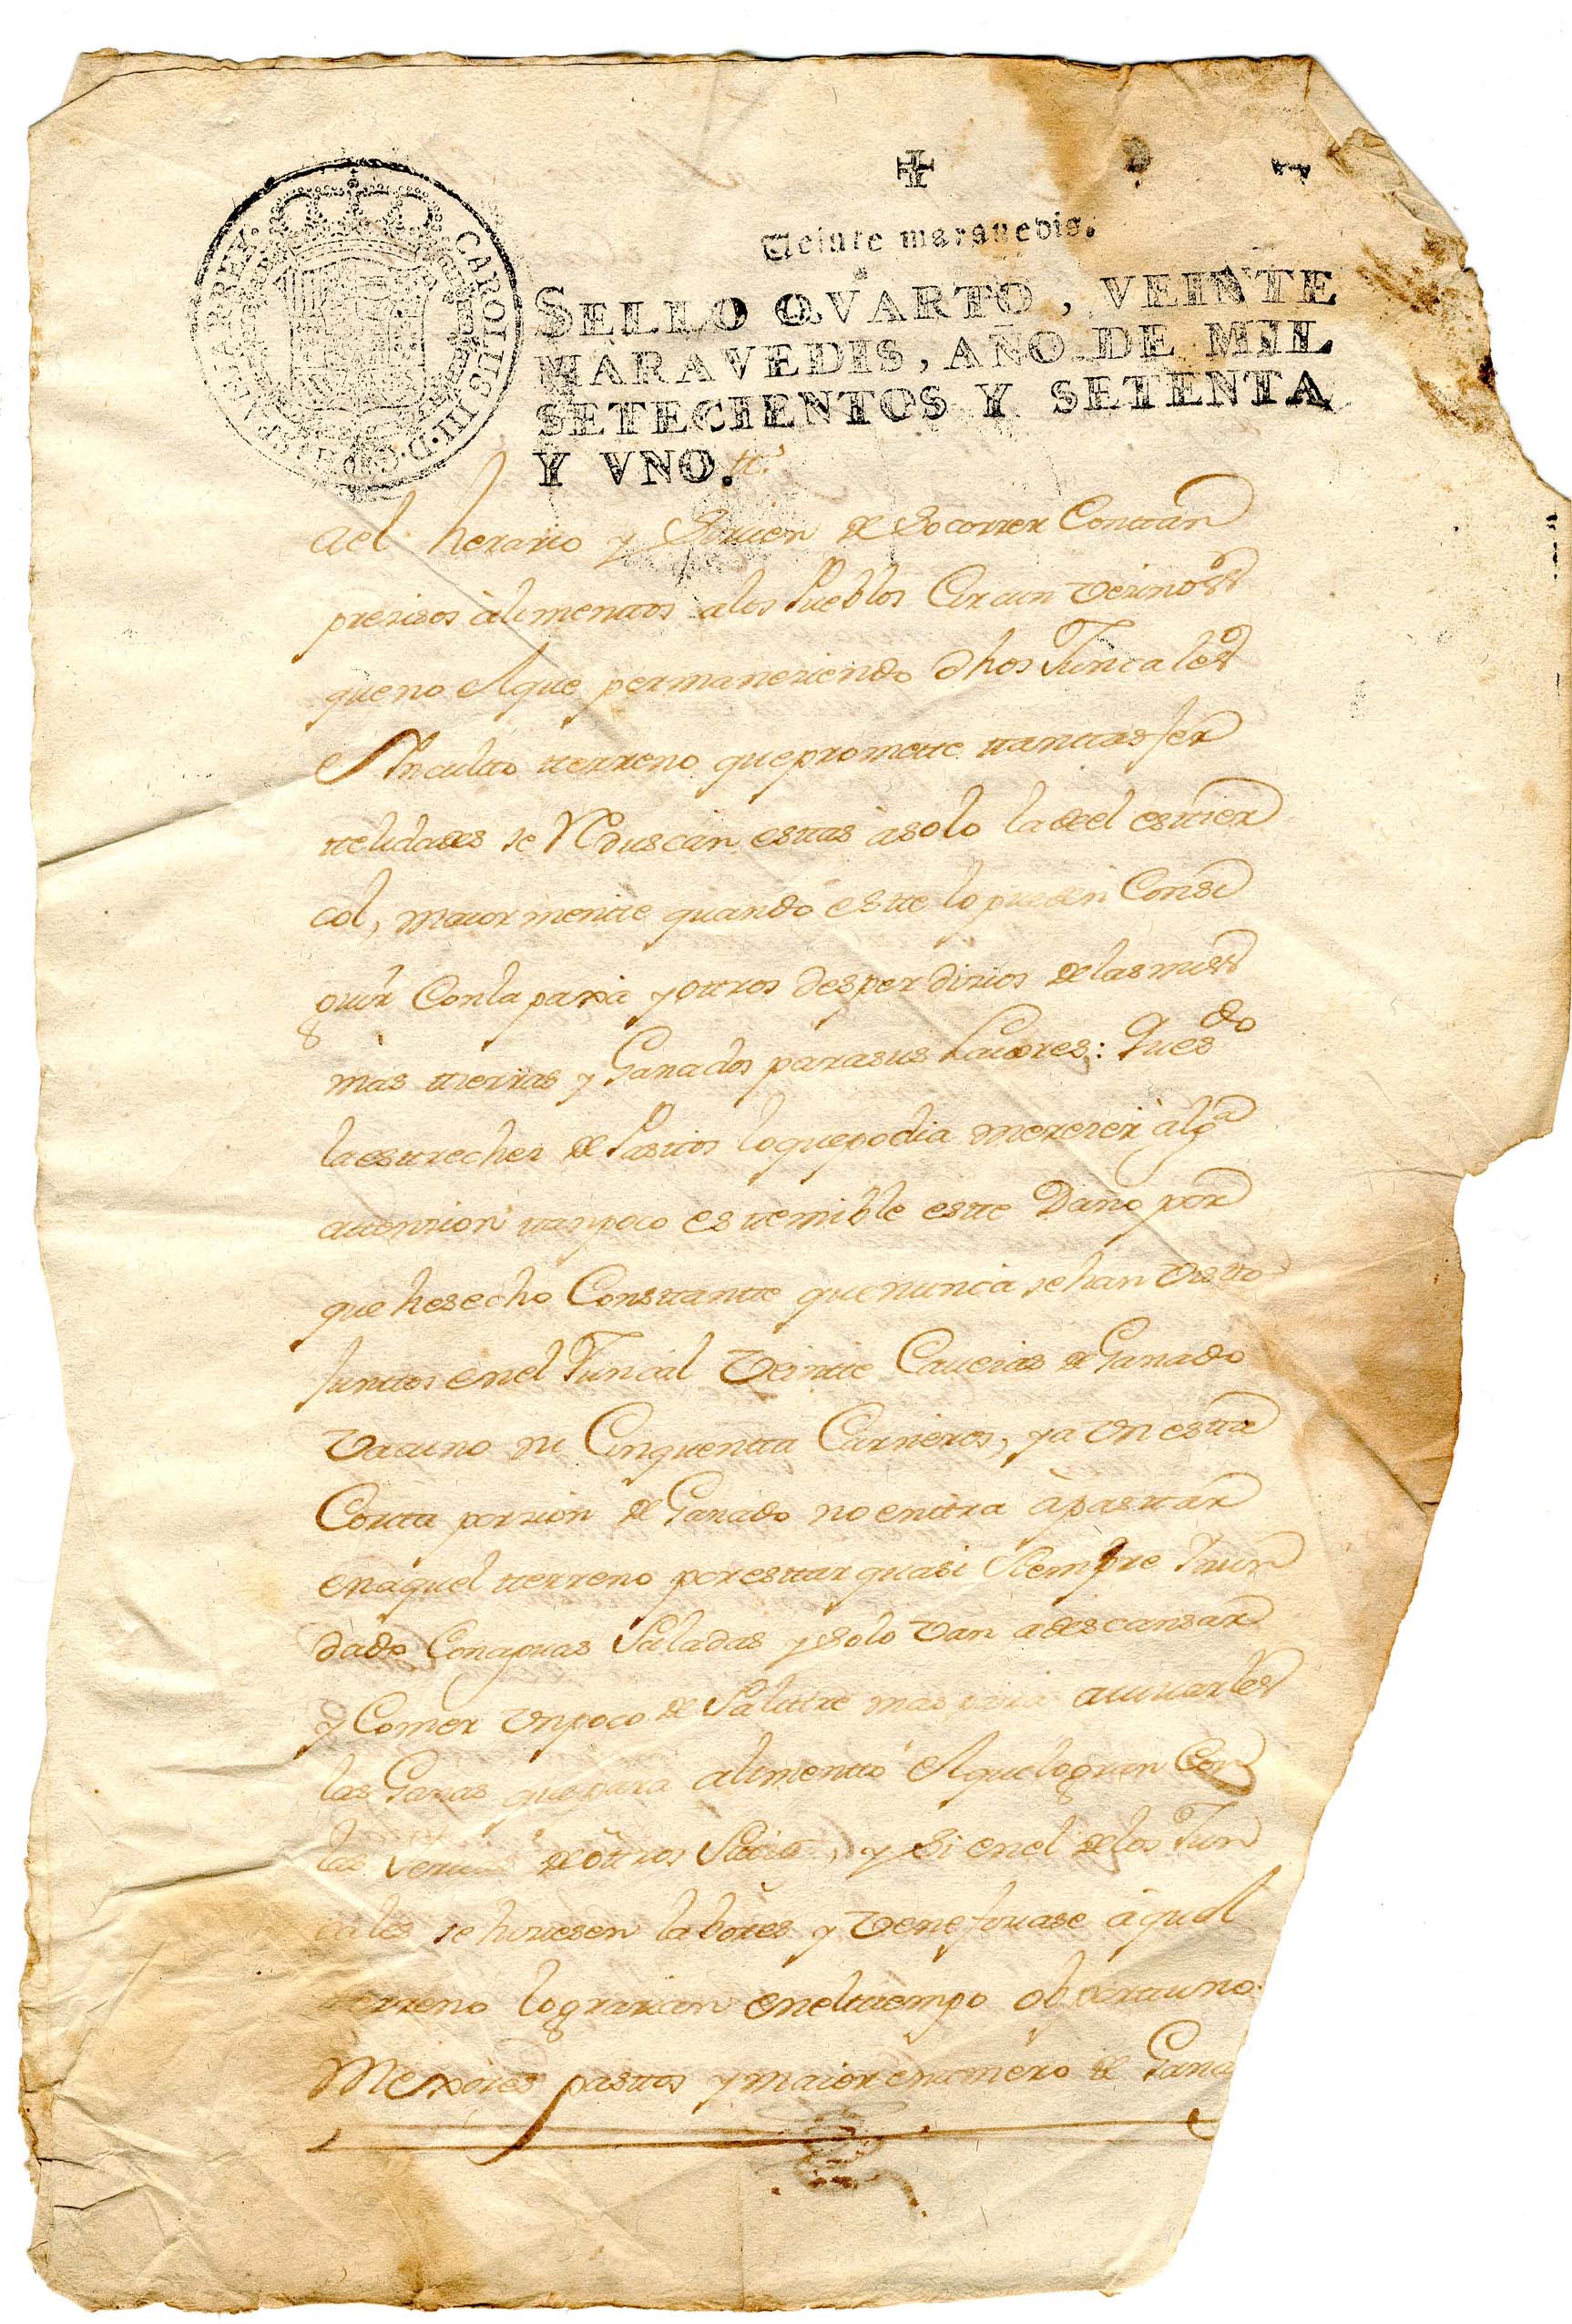 CAROLUS III. D. G. HISPANIAR. REX.
Veinte maravedis.
SELLO QVARTO, VEINTE
MARAVEDIS, AÑO DE MIL
SETECIENTOS Y SETENTA
Y VNO.
del herario y Sirvien de Socorrer Con tan
precisos àlimenttos a los Pueblos Circun vecinos
que no el que permaneciendo dhos Juncales
è Ynculto tterreno que promette ttanttas fer
ttelidades se Reduscan esttas àsolo la del esttier
col, maiormentte quando estte lo pueden Conse
guir Con la paxa y ottros desperdicios de las mis
mas ttierras y Ganados para sus Lavores: Que sdo
la esttreches de Pasttos lo que podia merecer àlga
attencion ttanpoco es ttemible estte Daño por
que hes echo Consttantte que nunca se han Vistto
Junttos en el Juncal Veintte Cavezas de Ganado
Vacuno ni Cinquentta Carneros, y a Un estta
Cortta porcion de Ganado no enttra à pasttar
en àquel tterreno por esttar quasi Siempre Inun
dado Con aguas Saladas y Solo Van a descansar
y Comer Un poco de Salittre mas para avivarles
las Ganas que para alimentto el que logran Con
las de òttros Sittios, y Si en el de los Jun
cales se hiciesen labores y Veneficiase àquel
tterreno lograrian en el ttiempo
Mexores pasttos y maior enumero de Gana